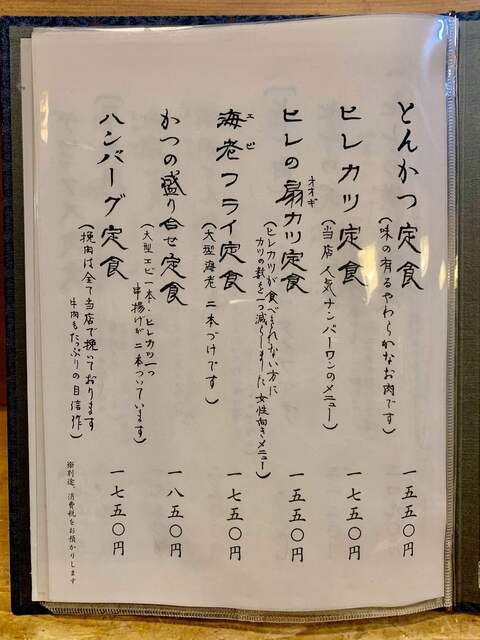 とんかつ定食
(味の有るやわらかなお肉です)
一五五〇円
ヒレカツ定食
(当店人気ナンバーワンのメニュー)
一七五〇円
オオギ
ヒレの扇カツ定食
(ヒレカツが食べきれない方に
カツの数を一つ減らしました 女性向きメニュー)
一五五〇円
エビ
海老フライ定食
(大型海老 二本づけです)
一七五〇円
かつの盛り合せ定食
(大型エビ一本・ヒレカツ一つ
串揚げが二本ついています)
一八五〇円
ハンバーグ定食
(挽肉は全て当店で挽いております
牛肉もたっぷりの自信作)
一七五〇円
※別途、消費税をお預かりします